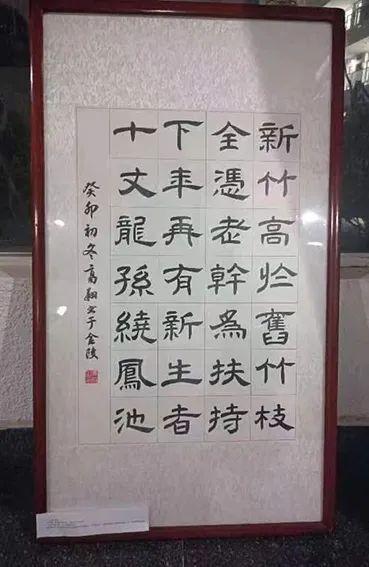 新竹高於舊竹枝
全憑老幹為扶持
下年再有新生者
十丈龍孫繞鳳池
癸卯初冬高翔書于金陵